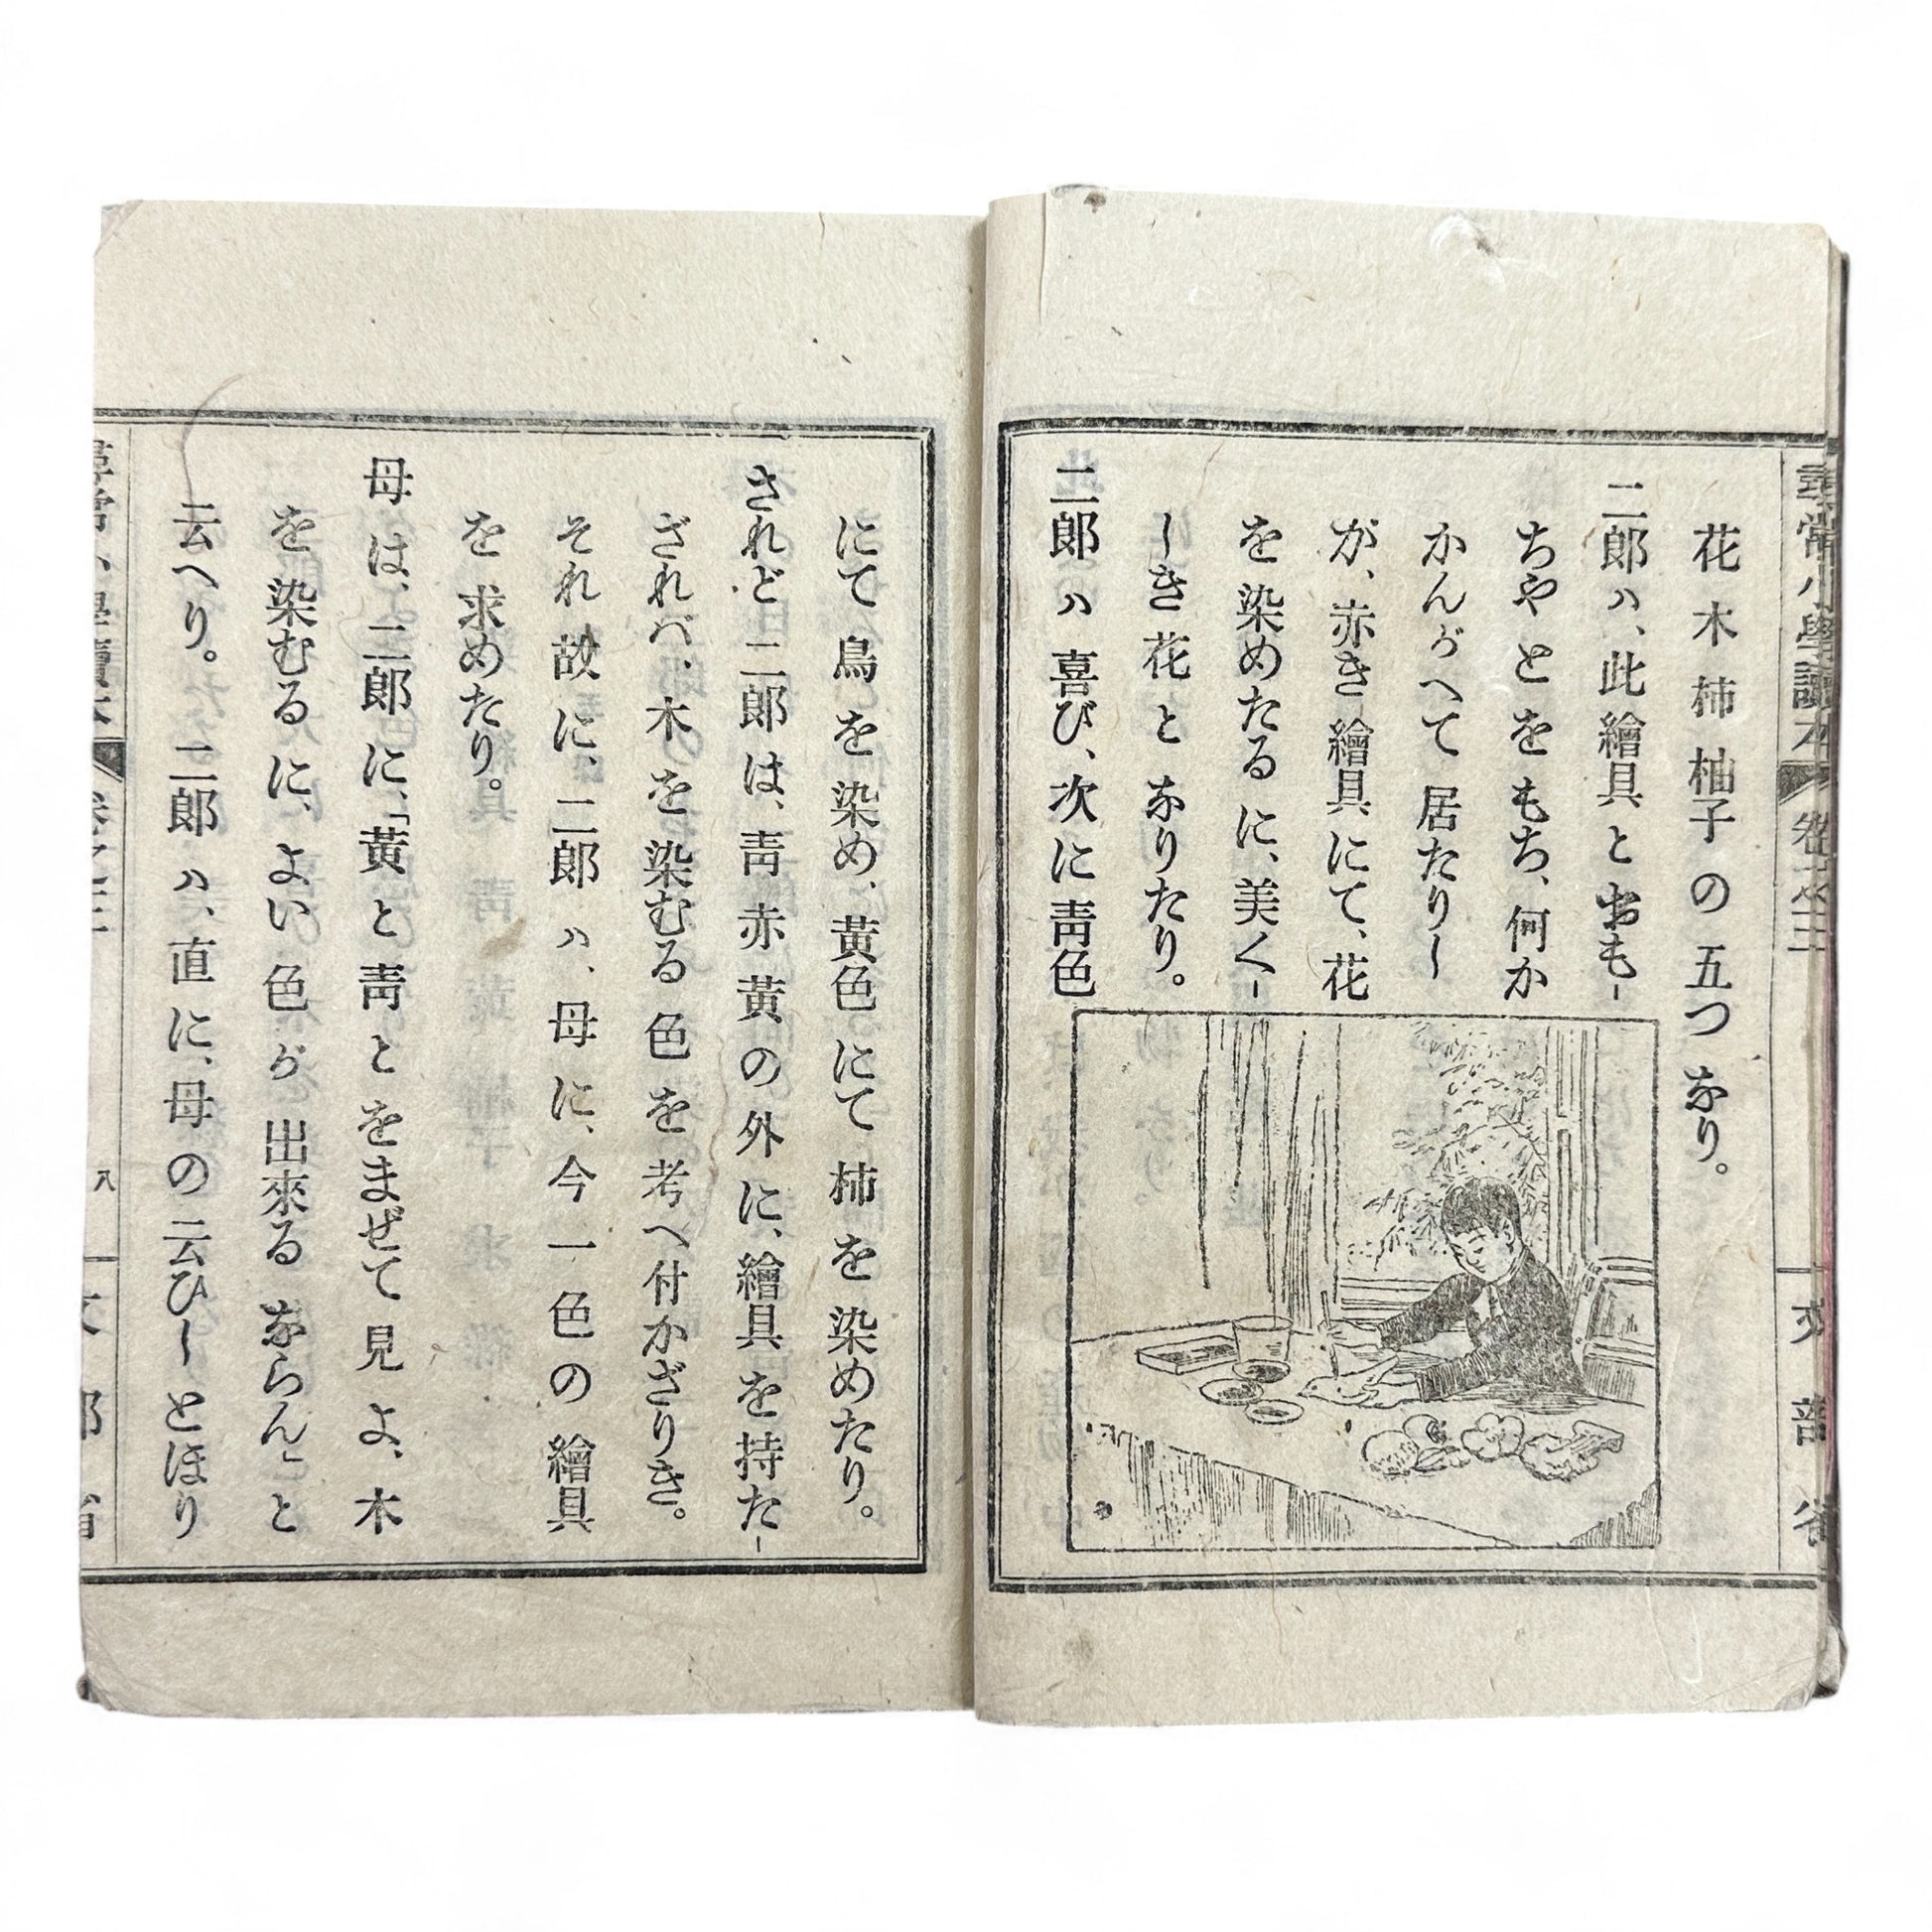 尋常小學讀本 卷之三 文部省
花木柿柚子の五つなり。
二郎ハ、此繪具とおも-
ちやとをもち、何か
かんがへて居たりし
が、赤き繪具にて、花
を染めたるに、美く-
しき花となりたり。
二郎ハ喜び、次に靑色
にて鳥を染め、黃色にて柿を染めたり。
されど二郎は、靑赤黃の外に、繪具を持た-
ざれバ、木を染むる色を考へ付かざりき。
それ故に、二郎ハ、母に、今一色の繪具
を求めたり。
母は、二郎に、「黃と靑とをまぜて見よ、木
を染むるに、よい色が出來るならん」と
云へり。二郎ハ、直に、母の云ひしとほり
尋常小學讀本 卷之三 八 文部省